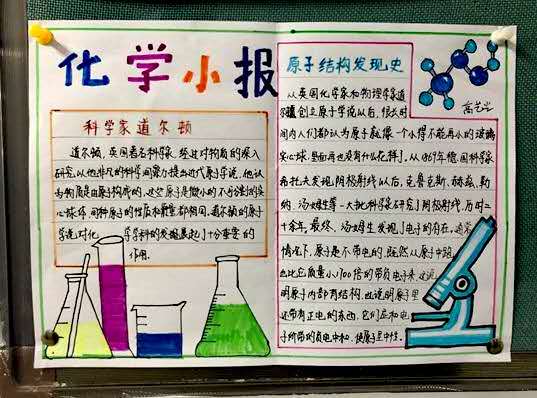 化学小报
科学家道尔顿
道尔顿,英国著名科学家,经过对物质的深入
研究,以他非凡的科学洞察力提出近代原子学说,他认
为物质是由原子构成的,这些原子是微小的不可分割的实
心球体,同种原子的性质和质量都相同,道尔顿的原子
学说对化学学科的发展起了十分重要的
作用。
原子结构发现史
从英国化学家和物理学家道
尔顿创立原子学说以后,很长时
间内人们都认为原子就像一个小得不能再小的玻璃
实心球,里面再也没有什么花样了。从1869年德国科学家
希托夫发现阴极射线以后,克鲁克斯、赫兹、勒
纳、汤姆生等一大批科学家研究了阴极射线,历时二
十余年,最终,汤姆生发现了电子的存在,通常
情况下,原子是不带电的,既然从原子中跑
出比它质量小1700倍的带负电子来,这说
明原子内部有结构,也说明原子里
还带有正电的东西,它们应和电
子所带的负电中和,使原子呈中性。